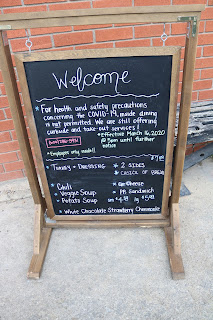 Welcome
* For health and safety precautions
concerning the COVID-19, inside dining
is not permitted. We are still offering
curbside and take-out services!
* effective March 16, 2020
@ 5pm until further
notice
* Employees only inside!!
* Turkey + Dressing * 2 sides
* choice of bread
* Chili
* Veggie Soup
* Potato Soup
Cheese
Sandwich
* White Chocolate Strawberry Cheesecake